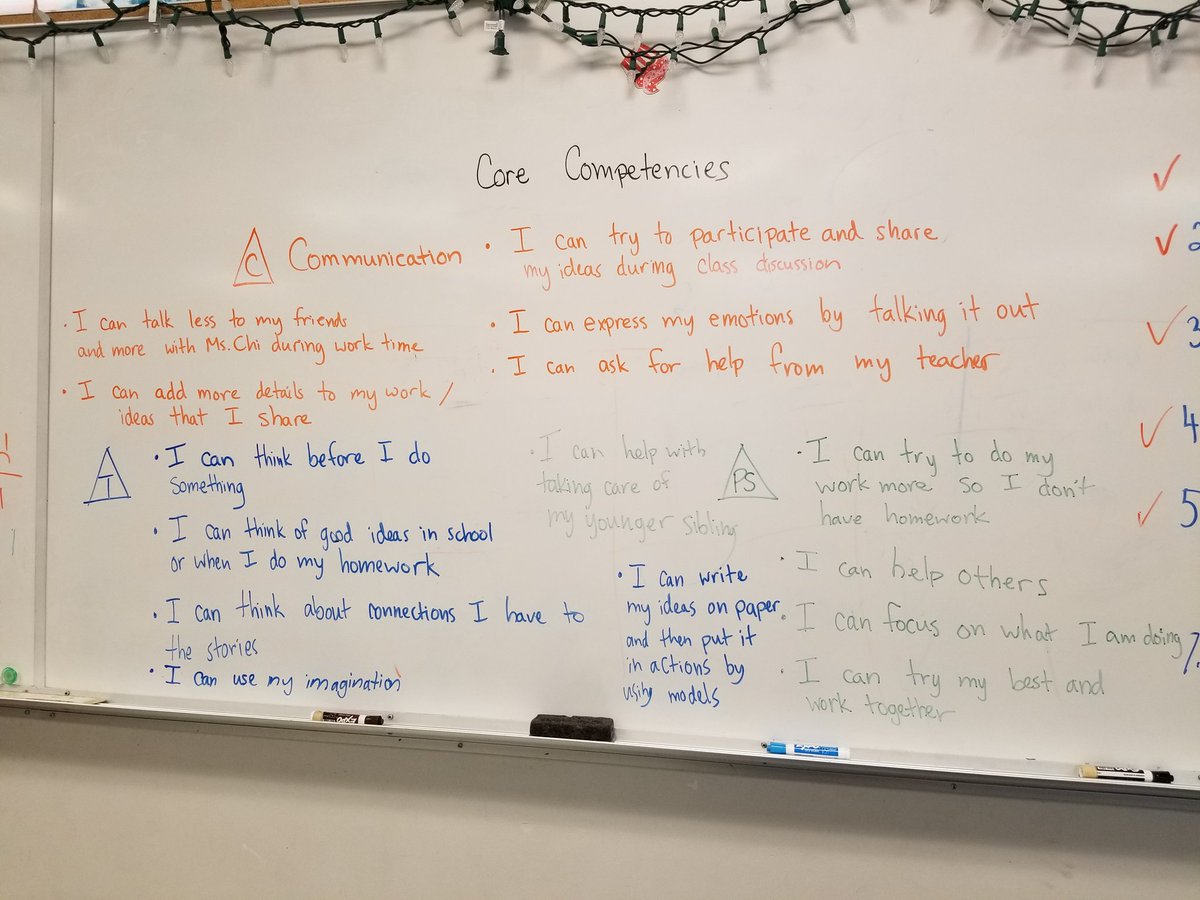 Core Competencies
C Communication
· I can talk less to my friends
and more with Ms. Chi during work time
· I can add more details to my work /
ideas that I share
· I can try to participate and share
my ideas during class discussion
· I can express my emotions by talking it out
· I can ask for help from my teacher
T
· I can think before I do
something
· I can think of good ideas in school
or when I do my homework
· I can think about connections I have to
the stories
· I can use my imagination
· I can write
my ideas on paper
and then put it
in actions by
using models
· I can help with
taking care of
my younger sibling
PS
· I can try to do my
work more so I don't
have homework
· I can help others
· I can focus on what I am doing
· I can try my best and
work together
✓
✓ 2
✓ 3
✓ 4
✓ 5
EXPO